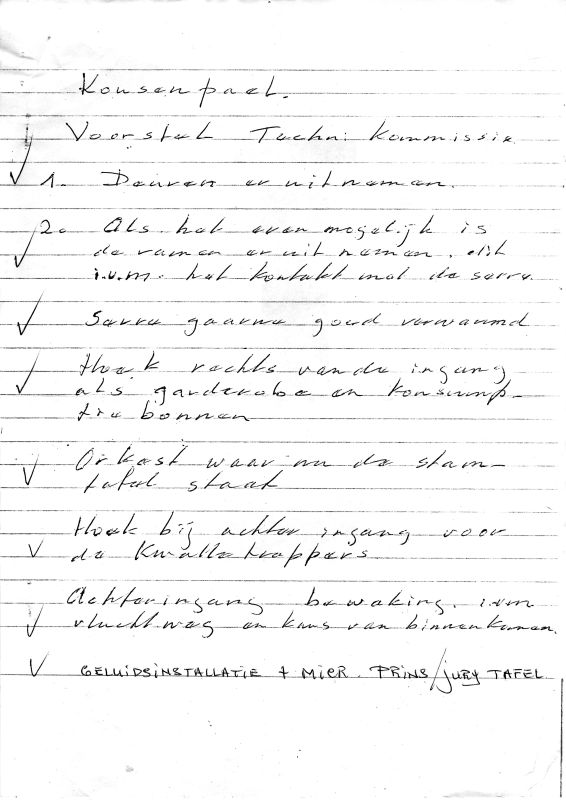 Kousenpael.
Voorstel Techn. Kommissie.
1. Deuren er uitnemen.
2. Als het even mogelijk is
de ramen er uit nemen. dit
i.v.m. het kontakt met de serre.
Serre gaarne goed verwarmd
Hoek rechts van de ingang
als garderobe en konsump-
tie bonnen
Orkest waar nu de stam-
tafel staat
Hoek bij achter ingang voor
de Kwalletrappers
Achteringang bewaking. ivm
vluchtweg en kans van binnenkomen.
GELUIDSINSTALLATIE + MICR. PRINS/JURY TAFEL